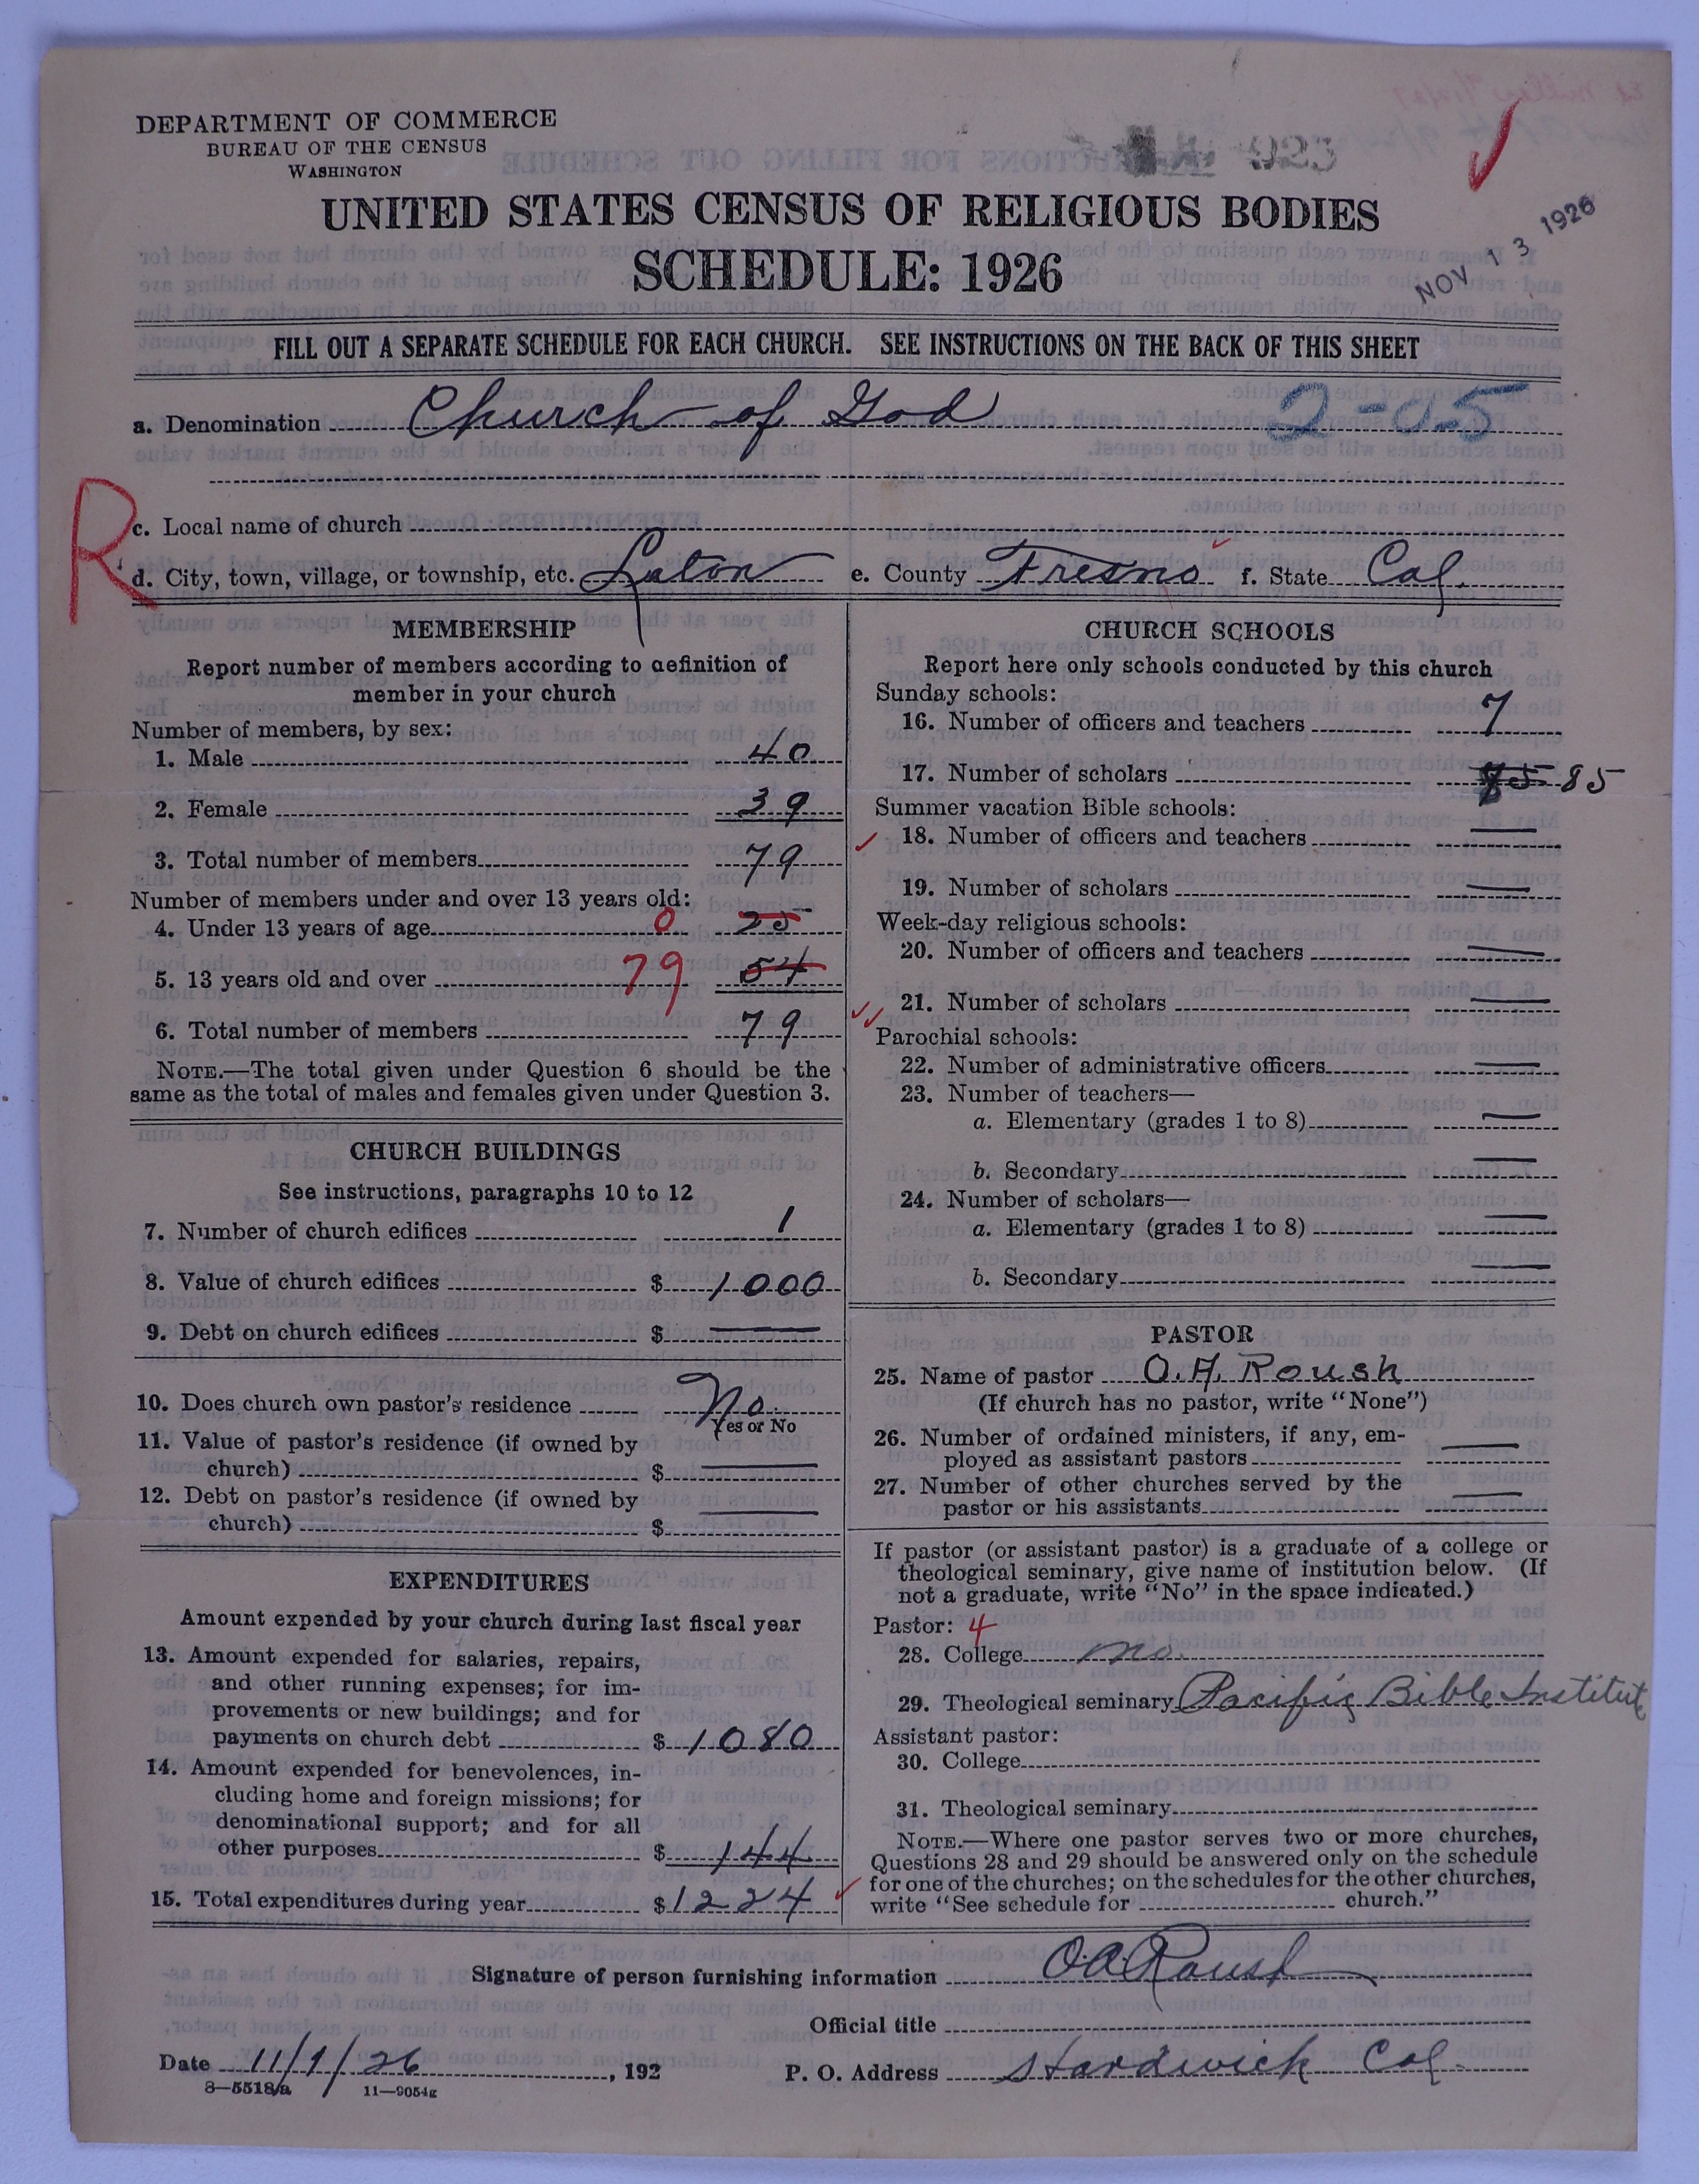 DEPARTMENT OF COMMERCE
BUREAU OF THE CENSUS
WASHINGTON
UNITED STATES CENSUS OF RELIGIOUS BODIES
SCHEDULE: 1926
NOV 13 1926
FILL OUT A SEPARATE SCHEDULE FOR EACH CHURCH. SEE INSTRUCTIONS ON THE BACK OF THIS SHEET
a. Denomination Church of God 2-05
R
c. Local name of church
d. City, town, village, or township, etc. Laton e. County Fresno f. State Cal.
MEMBERSHIP
Report number of members according to definition of
member in your church
Number of members, by sex:
1. Male 40
2. Female 39
3. Total number of members 79
Number of members under and over 13 years old:
4. Under 13 years of age 0 25
5. 13 years old and over 79 54
6. Total number of members 79
NOTE.—The total given under Question 6 should be the
same as the total of males and females given under Question 3.
CHURCH BUILDINGS
See instructions, paragraphs 10 to 12
7. Number of church edifices 1
8. Value of church edifices $ 1000
9. Debt on church edifices $ —
10. Does church own pastor's residence No.
Yes or No
11. Value of pastor's residence (if owned by
church) $ —
12. Debt on pastor's residence (if owned by
church) $ —
EXPENDITURES
Amount expended by your church during last fiscal year
13. Amount expended for salaries, repairs,
and other running expenses; for im-
provements or new buildings; and for
payments on church debt $ 1080
14. Amount expended for benevolences, in-
cluding home and foreign missions; for
denominational support; and for all
other purposes $ 144
15. Total expenditures during year $ 1224
CHURCH SCHOOLS
Report here only schools conducted by this church
Sunday schools:
16. Number of officers and teachers 7
17. Number of scholars 85
Summer vacation Bible schools:
18. Number of officers and teachers —
19. Number of scholars —
Week-day religious schools:
20. Number of officers and teachers —
21. Number of scholars —
Parochial schools:
22. Number of administrative officers —
23. Number of teachers—
a. Elementary (grades 1 to 8) —
b. Secondary —
24. Number of scholars—
a. Elementary (grades 1 to 8) —
b. Secondary —
PASTOR
25. Name of pastor O. A. Roush
(If church has no pastor, write "None")
26. Number of ordained ministers, if any, em-
ployed as assistant pastors —
27. Number of other churches served by the
pastor or his assistants —
If pastor (or assistant pastor) is a graduate of a college or
theological seminary, give name of institution below. (If
not a graduate, write "No" in the space indicated.)
Pastor: 4
28. College no.
29. Theological seminary Pacific Bible Institute
Assistant pastor:
30. College
31. Theological seminary
NOTE.—Where one pastor serves two or more churches,
Questions 28 and 29 should be answered only on the schedule
for one of the churches; on the schedules for the other churches,
write "See schedule for church."
Signature of person furnishing information O. A. Roush
Official title
Date 11/1/26, 192 P. O. Address Hardwick Cal.
8—5518/a 11—9054g